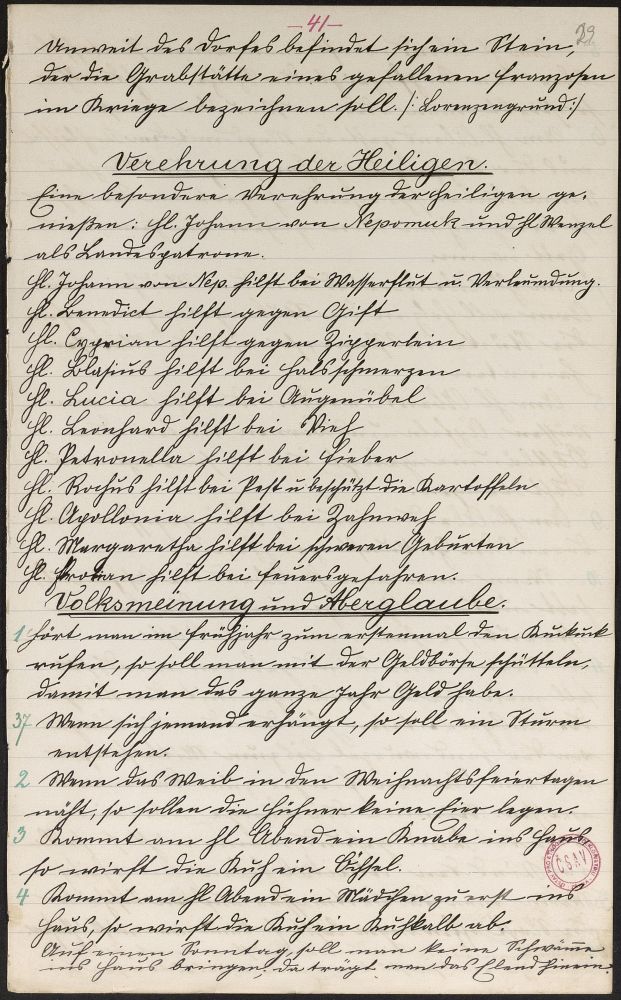 -41-
29
Unweit des Dorfes befindet sich ein Stein,
der die Grabstätte eines gefallenen Franzosen
im Kriege bezeichnen soll. /: Lorenzengrund :/
Verehrung der Heiligen.
Eine besondere Verehrung der Heiligen ge-
nießen: Hl. Johann von Nepomuk und hl Wenzel
als Landespatrone.
Hl. Johann von Nep. hilft bei Wasserflut u. Verleumdung.
Hl. Benedict hilft gegen Gift
Hl. Cyprian hilft gegen Zipperlein
Hl. Blasius hilft bei Halsschmerzen
Hl. Lucia hilft bei Augenübel
Hl. Leonhard hilft bei Vieh
Hl. Petronella hilft bei Fieber
Hl. Rochus hilft bei Pest u beschützt die Kartoffeln
Hl. Apollonia hilft bei Zahnweh
Hl. Margaretha hilft bei schweren Geburten
Hl. Florian hilft bei Feuersgefahren.
Volksmeinung und Aberglaube.
1 Hört man im Frühjahr zum erstenmal den Kuckuck
rufen, so soll man mit der Geldbörse schütteln,
damit man das ganze Jahr Geld habe.
37 Wenn sich jemand erhängt, so soll ein Sturm
entstehen.
2 Wenn das Weib in den Weihnachtsfeiertagen
näht, so sollen die Hühner keine Eier legen.
3 Kommt am hl Abend ein Knabe ins Haus,
so wirft die Kuh ein Öchsel.
4 Kommt am hl Abend ein Mädchen zu erst ins
Haus, so wirft die Kuh ein Kuhkalb ab.
Auf einen Sonntag, soll man keine Schwämme
ins Haus bringen, da trägt man das Elend hinein.
ČSAV